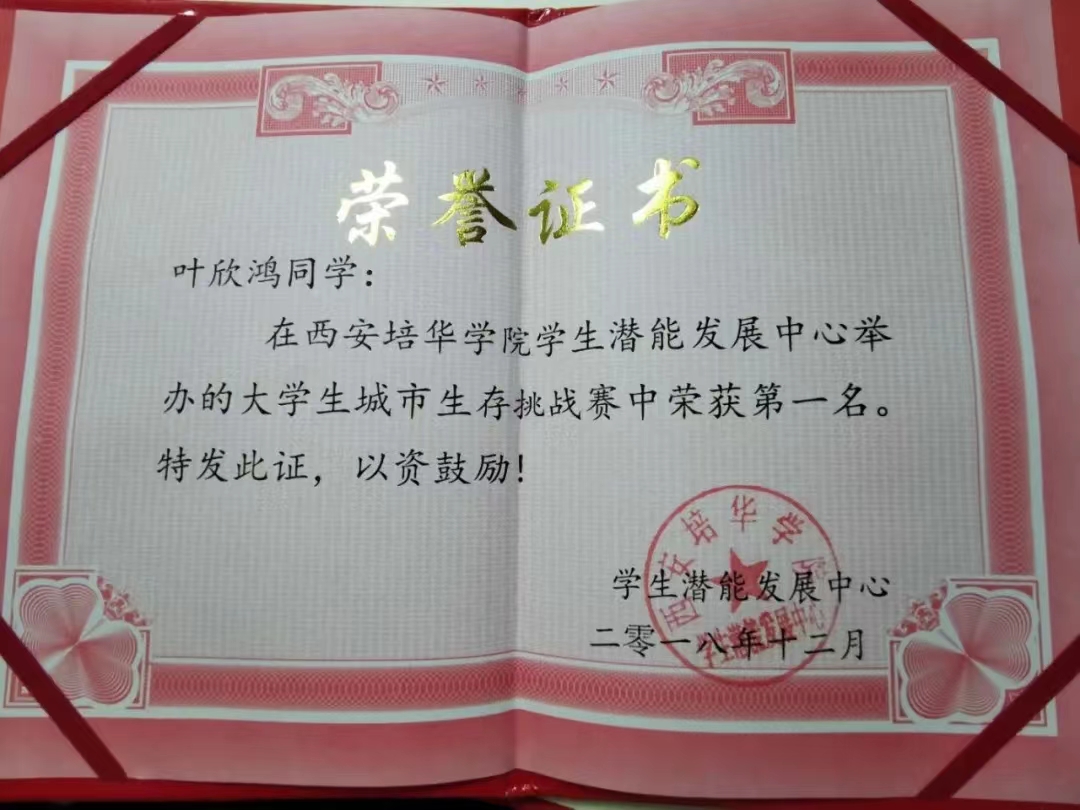 荣誉证书
叶欣鸿同学：
在西安培华学院学生潜能发展中心举
办的大学生城市生存挑战赛中荣获第一名。
特发此证，以资鼓励！
西安培华学院
学生潜能发展中心
学生潜能发展中心
二零一八年十二月